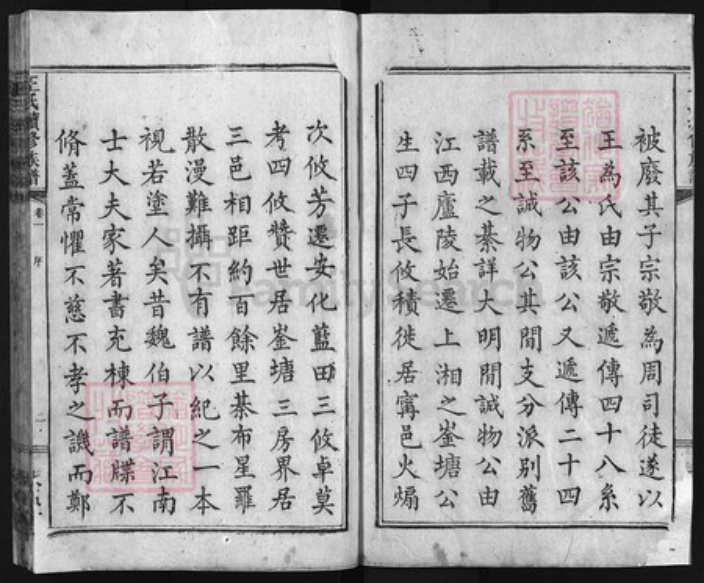 被廢其子宗敬為周司徒遂以
王為氏由宗敬遞傳四十八系
至該公由該公又遞傳二十四
系至誠物公其間支分派別舊
譜載之綦詳大明間誠物公由
江西廬陵始遷上湘之崟塘公
生四子長攸積徙居寗邑火煸
次攸芳遷安化藍田三攸卓莫
考四攸贊世居崟塘三房界居
三邑相距約百餘里棊布星羅
散漫難攝不有譜以紀之一本
視若塗人矣昔魏伯子謂江南
士大夫家著書充棟而譜牒不
脩蓋常懼不慈不孝之譏而鄭
王氏續修族譜
卷一
序
二
FamilySearch